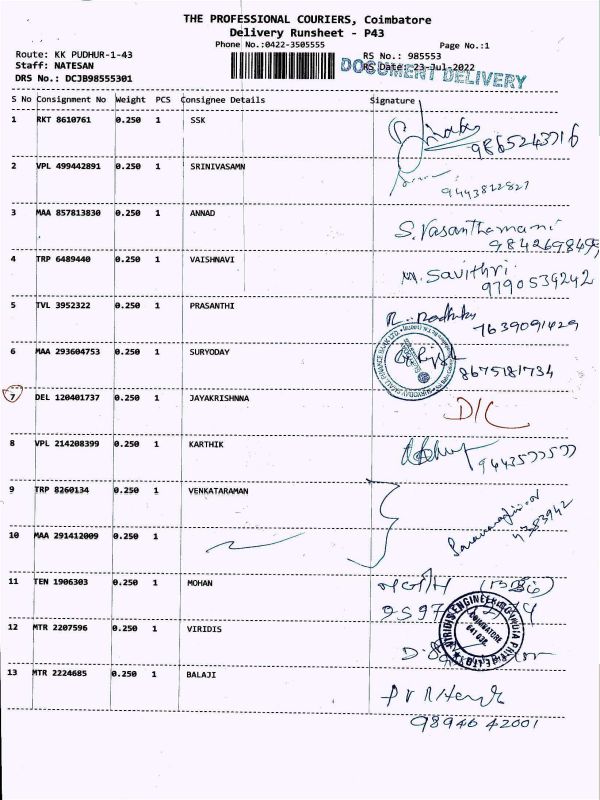 THE PROFESSIONAL COURIERS, Coimbatore
Delivery Runsheet - P43
Phone No.:0422-3505555 Page No.:1
Route: KK PUDHUR-1-43 RS No.: 985553
Staff: NATESAN RS Date: 23-Jul-2022
DOCUMENT DELIVERY
DRS No.: DCJB98555301
S No Consignment No Weight PCS Consignee Details Signature
1 RKT 8610761 0.250 1 SSK
9865243716
2 VPL 499442891 0.250 1 SRINIVASAMN
9443822827
3 MAA 857813830 0.250 1 ANNAD S. Vasanthamani
9842698499
4 TRP 6489440 0.250 1 VAISHNAVI M. Savithri
9790534242
5 TVL 3952322 0.250 1 PRASANTHI R. Radhika
7639091429
6 MAA 293604753 0.250 1 SURYODAY 8675181734
7 DEL 120401737 0.250 1 JAYAKRISHNNA D/C
8 VPL 214208399 0.250 1 KARTHIK 9443577577
9 TRP 8260134 0.250 1 VENKATARAMAN
10 MAA 291412009 0.250 1
11 TEN 1906303 0.250 1 MOHAN
12 MTR 2207596 0.250 1 VIRIDIS
COIMBATORE
13 MTR 2224685 0.250 1 BALAJI
98946 42001